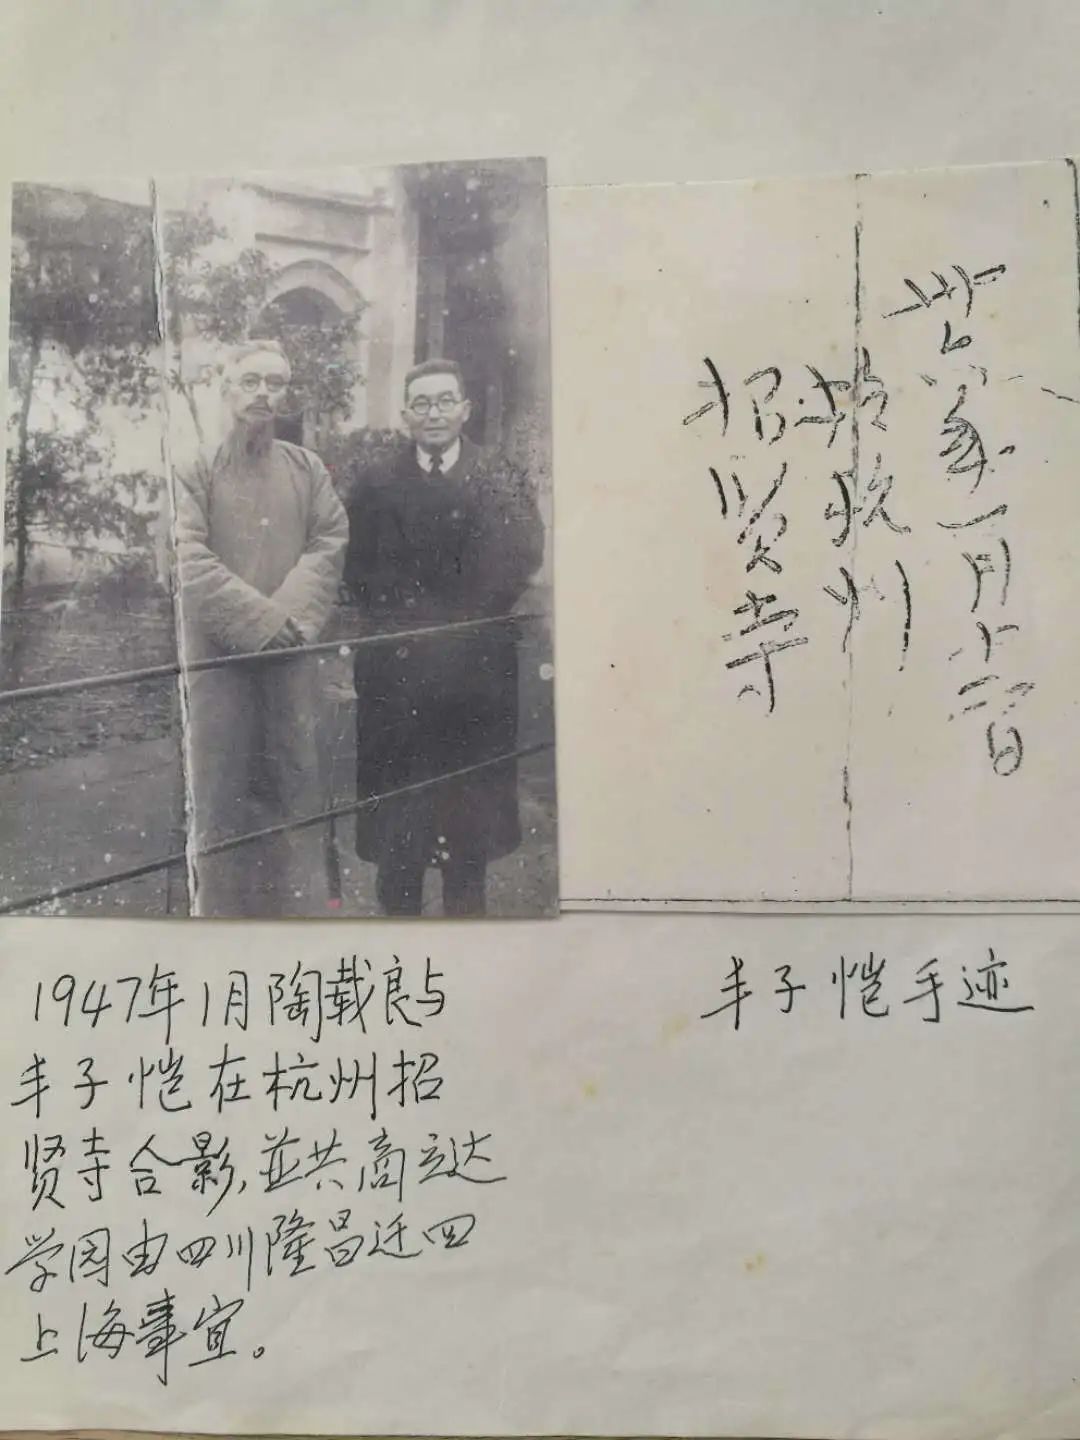 卅六年一月十二日
於杭州
招贤寺
1947年1月陶载良与
丰子恺在杭州招
贤寺合影,並共商立达
学园由四川隆昌迁回
上海事宜。
丰子恺手迹